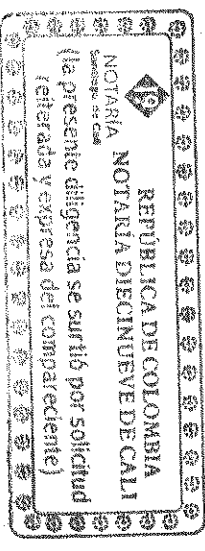 REPÚBLICA DE COLOMBIA
NOTARÍA DIECINUEVE DE CALI
NOTARÍA
Santiago de Cali
(la presente diligencia se surtió por solicitud
reiterada y expresa del compareciente)